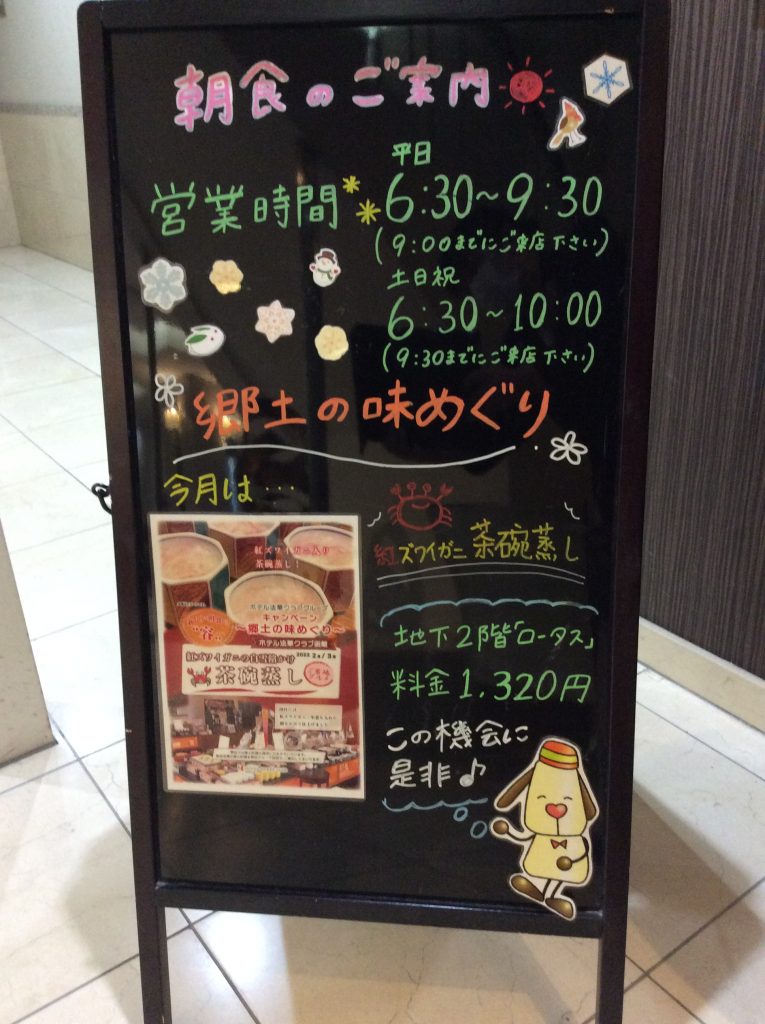 朝食のご案内
平日
営業時間 6:30~9:30
(9:00までにご来店下さい)
土日祝
6:30~10:00
(9:30までにご来店下さい)
郷土の味めぐり
今月は…
紅ズワイガニ茶碗蒸し
紅ズワイガニ入り
茶碗蒸し!
ホテル法華クラブグループ
キャンペーン
~郷土の味めぐり~
ホテル法華クラブ函館
2022 2月/3月
紅ズワイガニの白雪餡かけ
茶碗蒸し
地下2階「ロータス」
料金1,320円
この機会に
是非♪